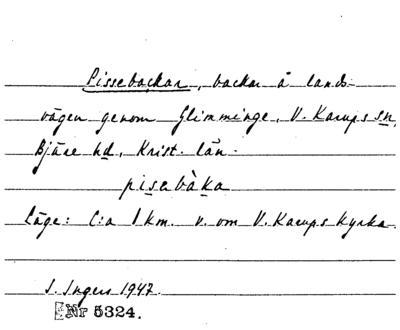 Pissebackar, backar å lands-
vägen genom Glimminge, V. Karups sn,
Bjäre hd, Krist. län.
pisebàka
Läge: C:a 1 km. v. om V. Karups kyrka.
I. Ingers 1947.
Nr 5324.